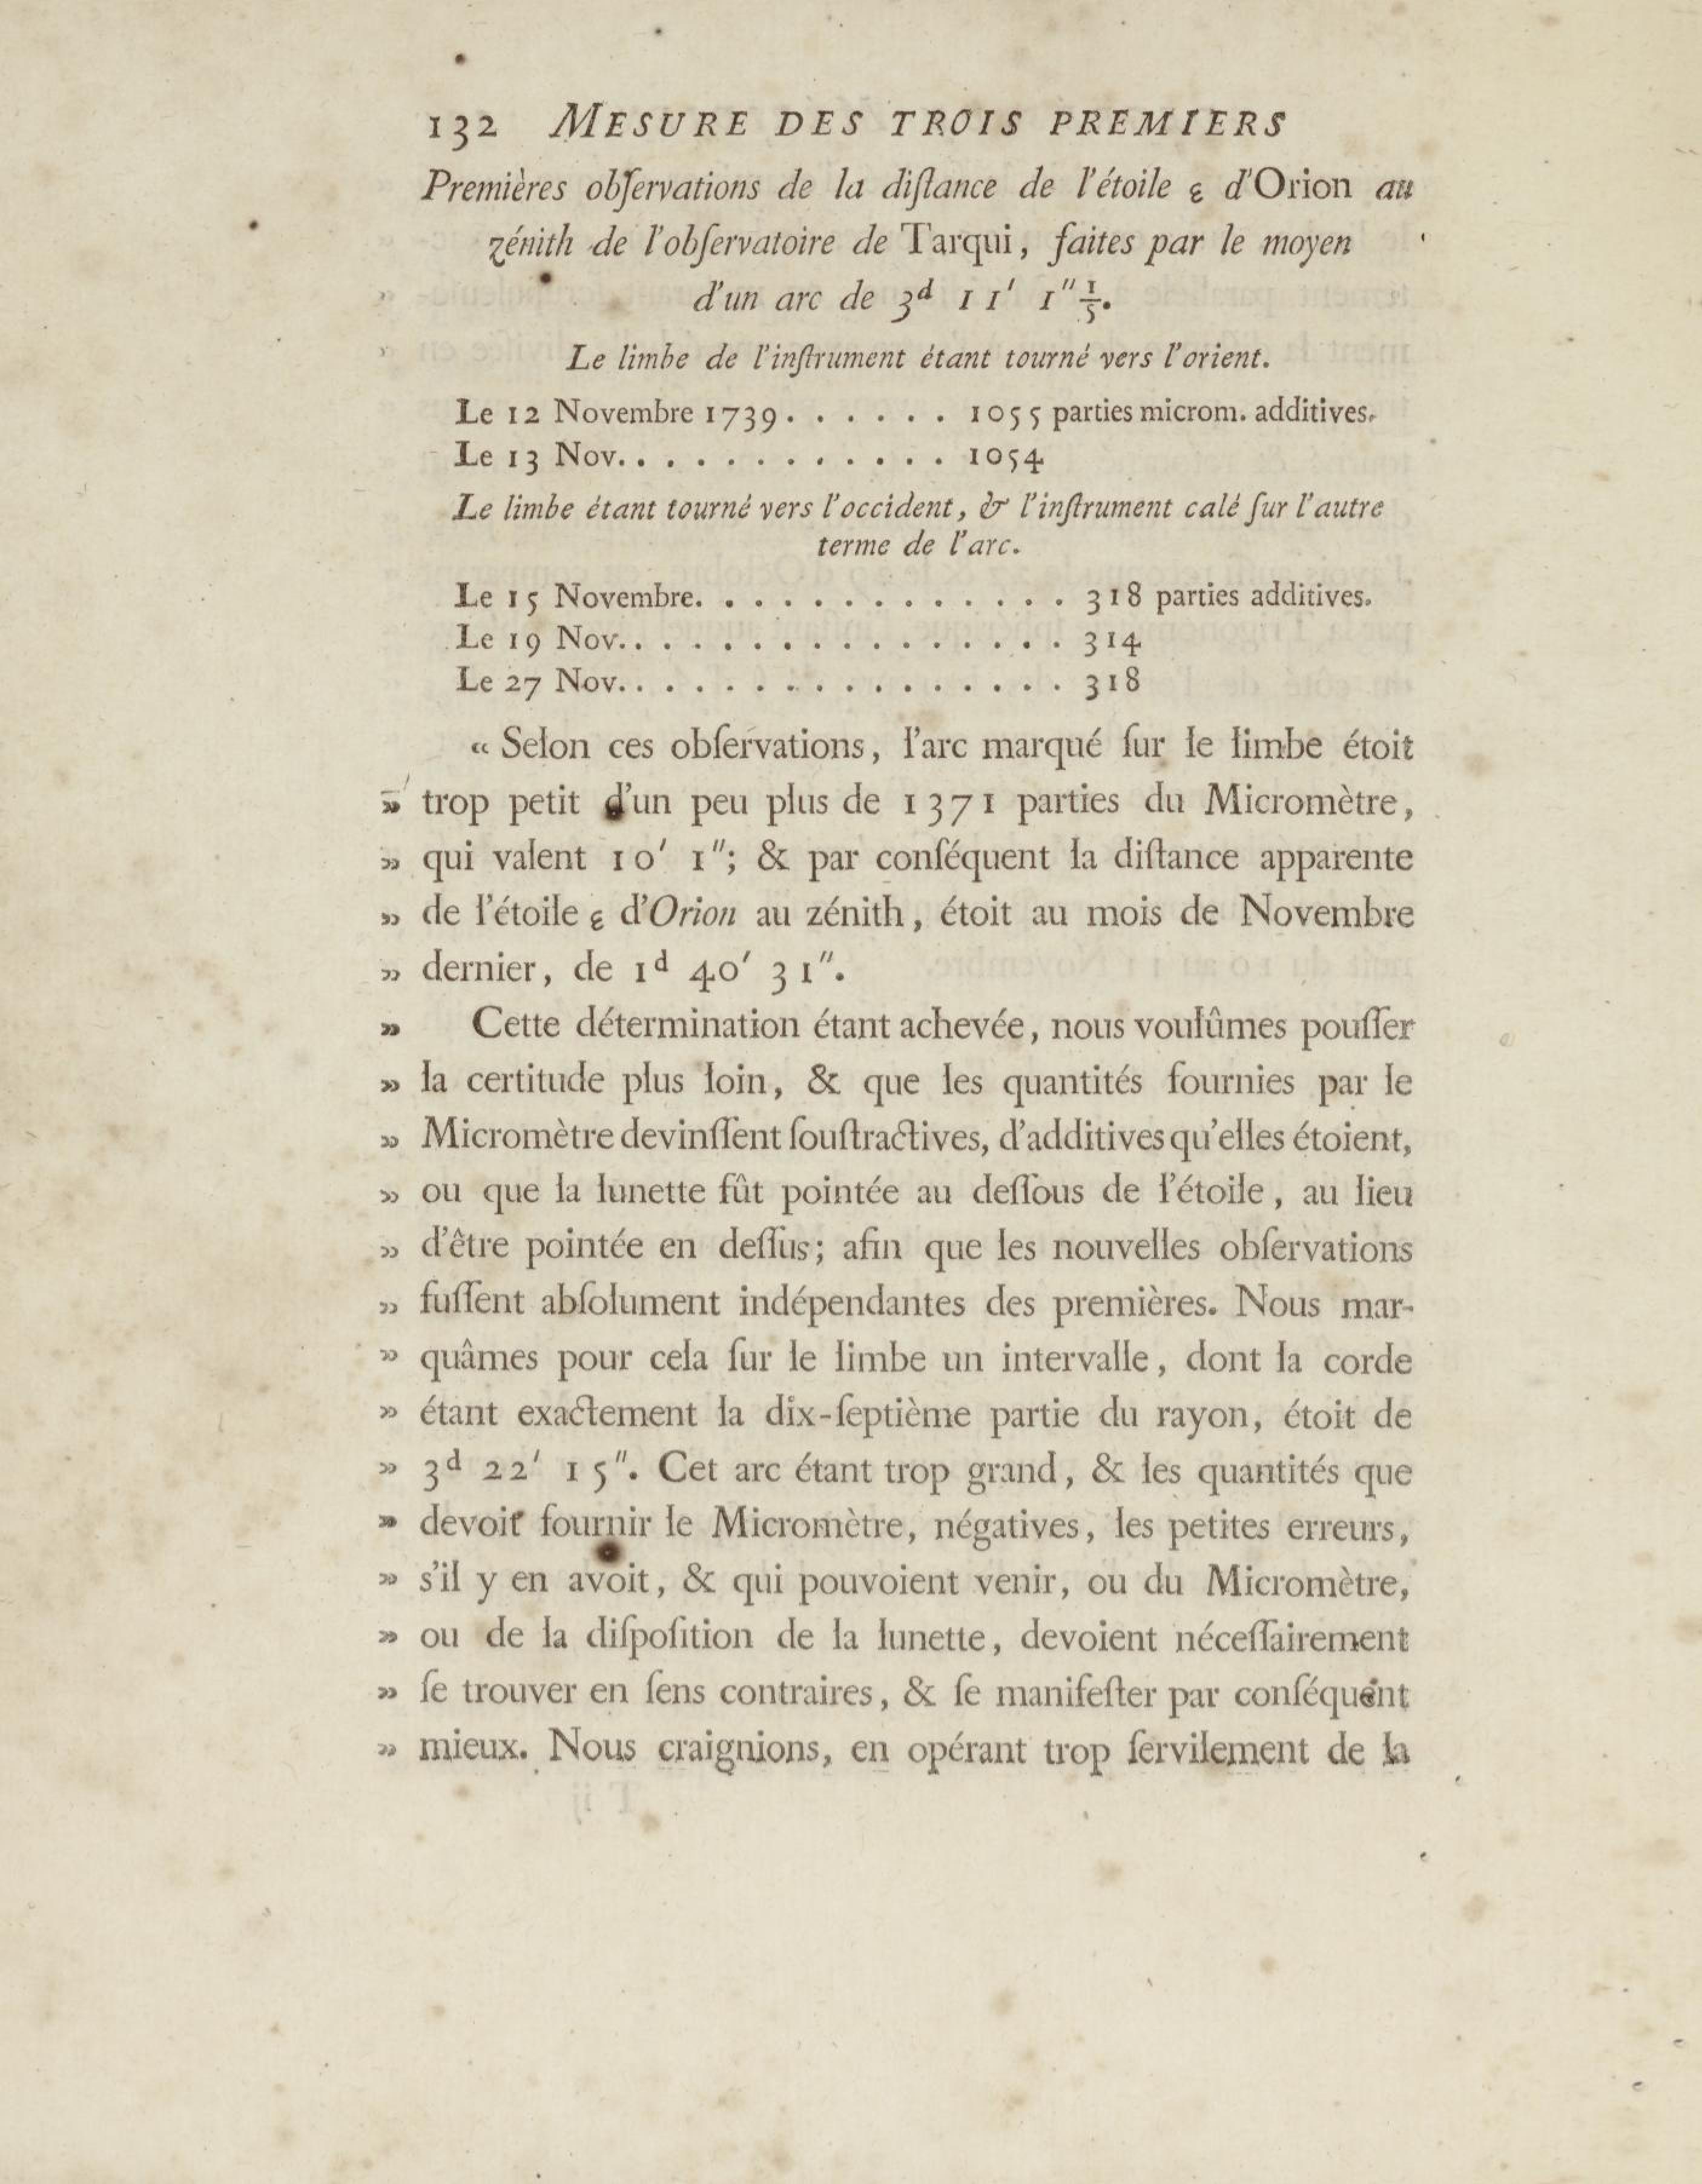 132 MESURE DES TROIS PREMIERS
Premières obſervations de la diſtance de l'étoile ε d'Orion au
zénith de l'obſervatoire de Tarqui, faites par le moyen
d'un arc de 3d 11′ 1″ 1/5.
Le limbe de l'inſtrument étant tourné vers l'orient.
Le 12 Novembre 1739. . . . . . 1055 parties microm. additives.
Le 13 Nov. . . . . . . . . . . . 1054
Le limbe étant tourné vers l'occident, & l'inſtrument calé ſur l'autre
terme de l'arc.
Le 15 Novembre. . . . . . . . . . . . . 318 parties additives.
Le 19 Nov. . . . . . . . . . . . . . . . 314
Le 27 Nov. . . . . . . . . . . . . . . . 318
« Selon ces obſervations, l'arc marqué ſur le limbe étoit
» trop petit d'un peu plus de 1371 parties du Micromètre,
» qui valent 10′ 1″; & par conſéquent la diſtance apparente
» de l'étoile ε d'Orion au zénith, étoit au mois de Novembre
» dernier, de 1d 40′ 31″.
» Cette détermination étant achevée, nous voulûmes pouſſer
» la certitude plus loin, & que les quantités fournies par le
» Micromètre devinſſent ſouſtractives, d'additives qu'elles étoient,
» ou que la lunette fût pointée au deſſous de l'étoile, au lieu
» d'être pointée en deſſus; afin que les nouvelles obſervations
» fuſſent abſolument indépendantes des premières. Nous mar-
» quâmes pour cela ſur le limbe un intervalle, dont la corde
» étant exactement la dix-ſeptième partie du rayon, étoit de
» 3d 22′ 15″. Cet arc étant trop grand, & les quantités que
» devoit fournir le Micromètre, négatives, les petites erreurs,
» s'il y en avoit, & qui pouvoient venir, ou du Micromètre,
» ou de la diſpoſition de la lunette, devoient néceſſairement
» ſe trouver en ſens contraires, & ſe manifeſter par conſéquent
» mieux. Nous craignions, en opérant trop ſervilement de la